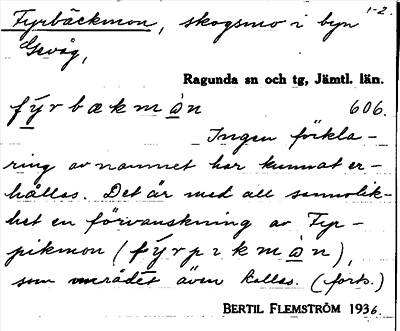 Fyrbäckmon, skogsmo i byn 1-2.
Gevåg,
Ragunda sn och tg, Jämtl. län.
fýrbækmà̱n 606.
Ingen förkla-
ring av namnet har kunnat er-
hållas. Det är med all sannolik-
het en förvanskning av Fyr-
pikmon (fýrpɪkmà̱n),
som området även kallas. (forts.)
BERTIL FLEMSTRÖM 1936.